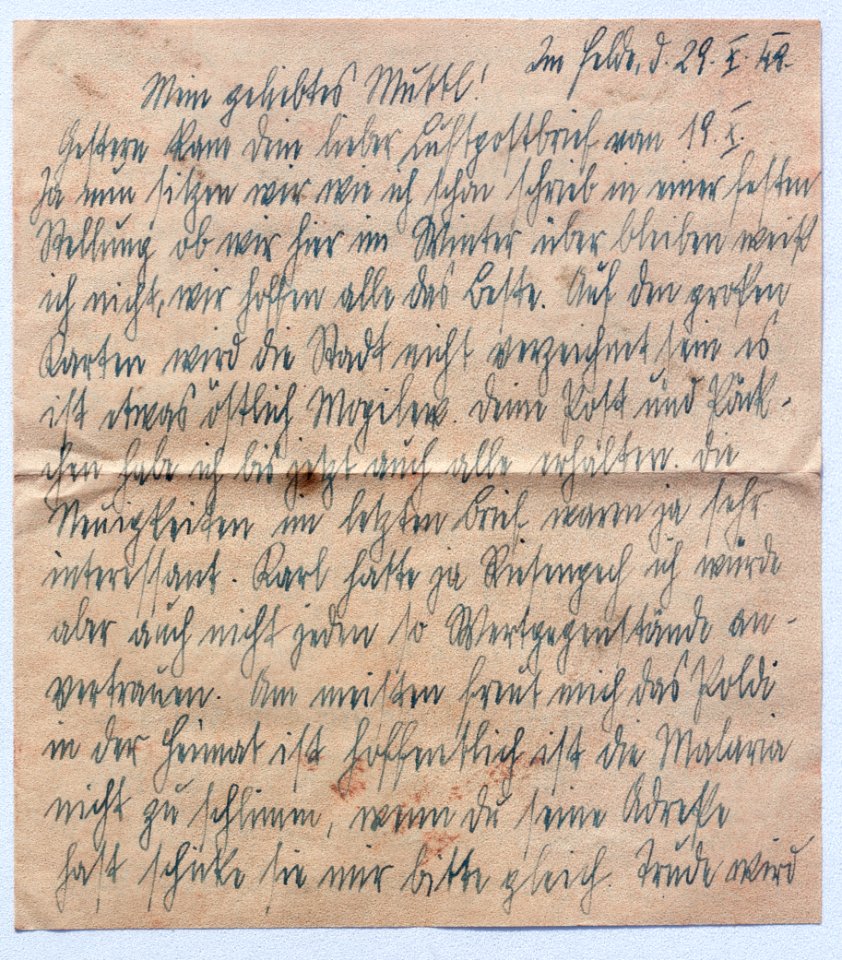 Im Felde, d. 29. X. 42.
Mein geliebtes Muttl!
Gestern kam dein lieber Luftpostbrief vom 19. X.
Ja nun sitzen wir wie ich schon schrieb in einer festen
Stellung ob wir hier im Winter über bleiben weiß
ich nicht, wir hoffen alle das Beste. Auf den großen
Karten wird die Stadt nicht verzeichnet sein es
ist etwas östlich Mogilew. Deine Post und Päck-
chen habe ich bis jetzt auch alle erhalten. Die
Neuigkeiten im letzten Brief waren ja sehr
interessant. Karl hatte ja Riesenpech ich würde
aber auch nicht jeden so Wertgegenstände an-
vertrauen. Am meisten freut mich das Poldi
in der Heimat ist hoffentlich ist die Malaria
nicht zu schlimm, wenn du seine Adreße
hast schicke sie mir bitte gleich. Trude wird